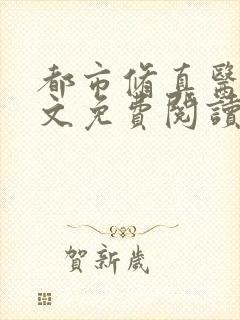 都市脩真醫
文免費閱讀
賀新歲